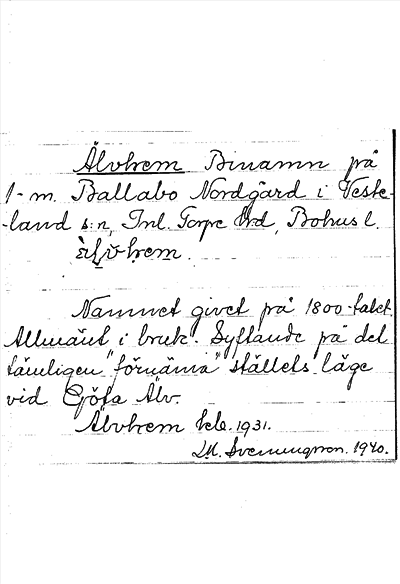 Älvhem Binamn på
1-m. Ballabo Nordgård i Veste-
-land s:n, Inl. Torpe hrd, Bohus l.
Namnet givet på 1800-talet.
Allmänt i bruk. Syftande på det
tämligen "förnäma" ställets läge
vid Göta Älv.
Älvhem 1931.
Svenungsson. 1940.